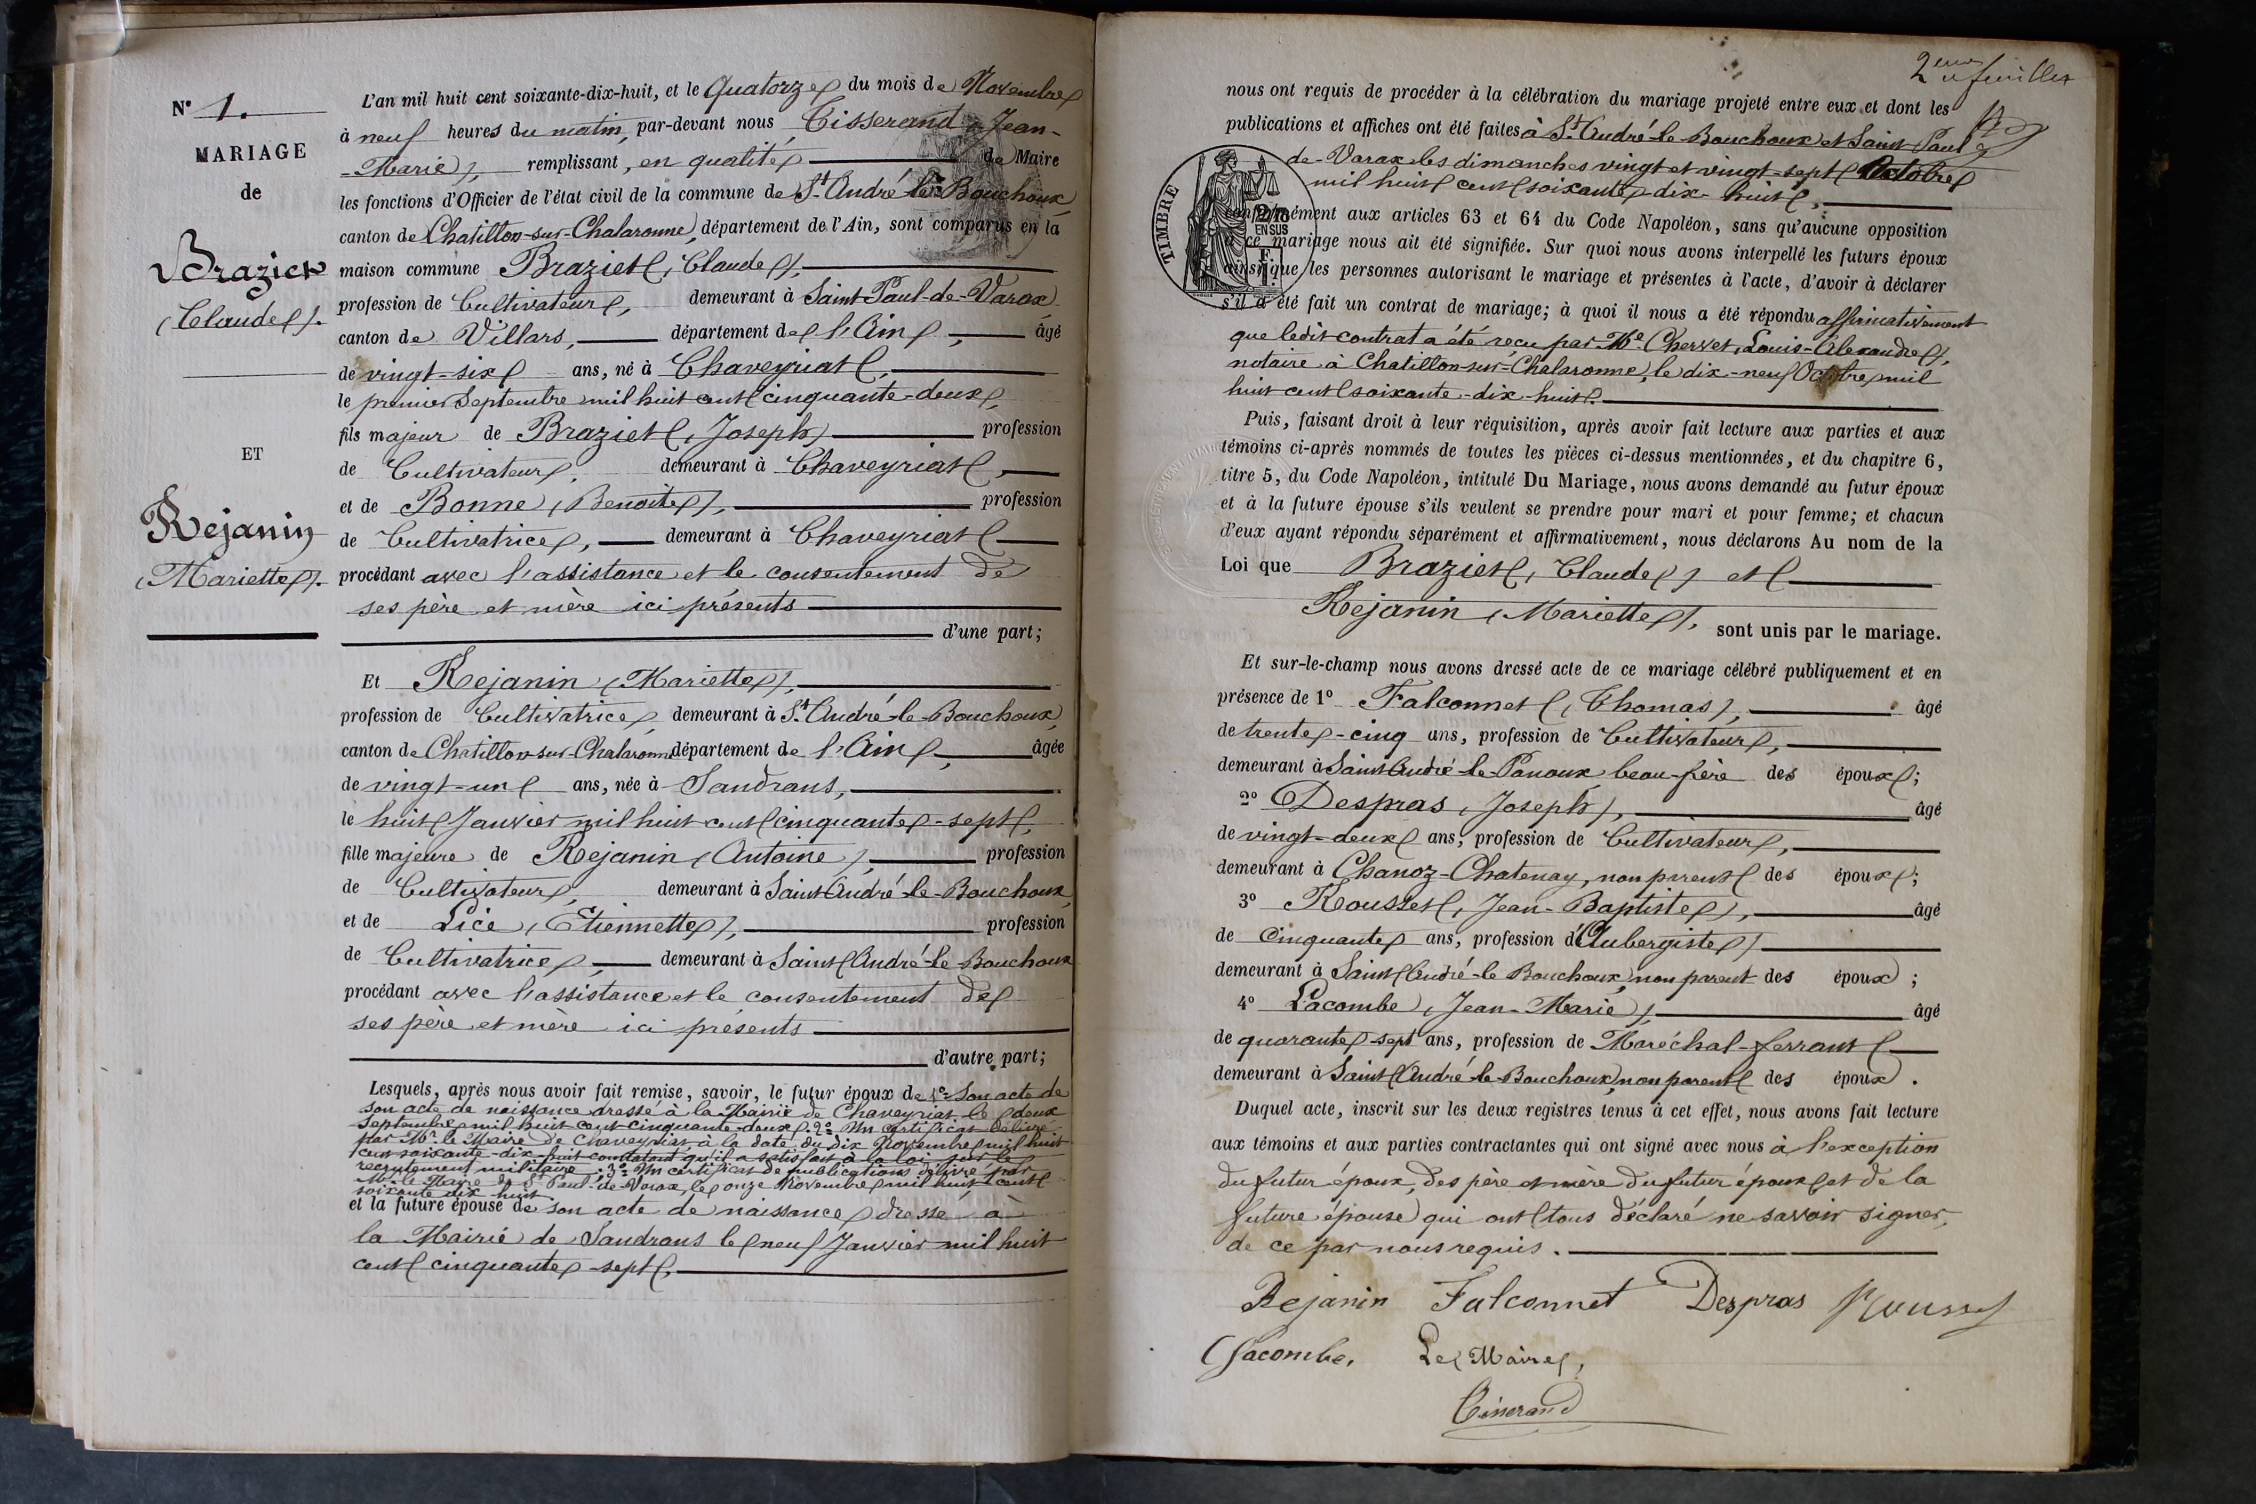 N° 1.
MARIAGE
de
Brazier
(Claude).
ET
Rejanin
(Mariette).
L'an mil huit cent soixante-dix-huit, et le Quatorze du mois de Novembre
à neuf heures du matin, par-devant nous Tisserand, Jean-
-Marie), remplissant, en qualité de Maire
les fonctions d'Officier de l'état civil de la commune de St André-le-Bouchoux,
canton de Chatillon-sur-Chalaronne, département de l'Ain, sont comparus en la
maison commune Brazier, (Claude),
profession de Cultivateur, demeurant à Saint-Paul-de-Varax
canton de Villars, département de l'Ain, âgé
de vingt-six ans, né à Chaveyriat,
le premier Septembre mil huit cent cinquante-deux,
fils majeur de Brazier, (Joseph) profession
de Cultivateur, demeurant à Chaveyriat,
et de Bonne, (Benoite), profession
de Cultivatrice, demeurant à Chaveyriat
procédant avec l'assistance et le consentement de
ses père et mère ici présents
d'une part;
Et Rejanin (Mariette),
profession de Cultivatrice, demeurant à St André-le-Bouchoux,
canton de Chatillon-sur-Chalaronne département de l'Ain, âgée
de vingt-un ans, née à Sandrans,
le huit Janvier mil huit cent cinquante-sept,
fille majeure de Rejanin (Antoine), profession
de Cultivateur, demeurant à Saint-André-le-Bouchoux,
et de Lice, (Etiennette), profession
de Cultivatrice, demeurant à Saint-André-le-Bouchoux
procédant avec l'assistance et le consentement de
ses père et mère ici présents
d'autre part;
Lesquels, après nous avoir fait remise, savoir, le futur époux de 1° Son acte de
son acte de naissance dressé à la Mairie de Chaveyriat le deux
Septembre mil huit cent cinquante-deux. 2° Un certificat délivré
par Mr le Maire de Chaveyriat à la date du dix Novembre mil huit
cent soixante-dix-huit constatant qu'il a satisfait à la loi sur le
recrutement militaire. 3° Un certificat de publications délivré par
Mr le Maire de St Paul-de-Varax, le onze Novembre mil huit cent
soixante dix-huit
et la future épouse de son acte de naissance dressé à
la Mairie de Sandrans le neuf Janvier mil huit
cent cinquante-sept,
2eme feuillet
nous ont requis de procéder à la célébration du mariage projeté entre eux et dont les
publications et affiches ont été faites à St André-le-Bouchoux et Saint Paul
de-Varax les dimanches vingt et vingt-sept Octobre
mil huit cent soixante-dix-huit,
TIMBRE
2/10
EN SUS
conformément aux articles 63 et 64 du Code Napoléon, sans qu'aucune opposition
à ce mariage nous ait été signifiée. Sur quoi nous avons interpellé les futurs époux
ainsi que les personnes autorisant le mariage et présentes à l'acte, d'avoir à déclarer
s'il a été fait un contrat de mariage; à quoi il nous a été répondu affirmativement
que ledit contrat a été reçu par Me Chervet, Louis-Alexandre),
notaire à Chatillon-sur-Chalaronne, le dix-neuf Octobre mil
huit cent soixante-dix-huit.
Puis, faisant droit à leur réquisition, après avoir fait lecture aux parties et aux
témoins ci-après nommés de toutes les pièces ci-dessus mentionnées, et du chapitre 6,
titre 5, du Code Napoléon, intitulé Du Mariage, nous avons demandé au futur époux
et à la future épouse s'ils veulent se prendre pour mari et pour femme; et chacun
d'eux ayant répondu séparément et affirmativement, nous déclarons Au nom de la
Loi que Brazier, (Claude) et
Rejanin (Mariette), sont unis par le mariage.
Et sur-le-champ nous avons dressé acte de ce mariage célébré publiquement et en
présence de 1° Falconnet (Thomas), âgé
de trente-cinq ans, profession de Cultivateur,
demeurant à Saint-André-le-Panoux, beau-frère des époux;
2° Despras, (Joseph), âgé
de vingt-deux ans, profession de Cultivateur,
demeurant à Chanoz-Chatenay, non parent des époux;
3° Rousset, (Jean-Baptiste), âgé
de Cinquante ans, profession d'Aubergiste
demeurant à Saint-André-le-Bouchoux, non parent des époux;
4° Lacombe, (Jean-Marie), âgé
de quarante-sept ans, profession de Maréchal-ferrant
demeurant à Saint-André-le-Bouchoux, non parent des époux.
Duquel acte, inscrit sur les deux registres tenus à cet effet, nous avons fait lecture
aux témoins et aux parties contractantes qui ont signé avec nous à l'exception
du futur époux, des père et mère du futur époux et de la
future épouse qui ont tous déclaré ne savoir signer,
de ce par nous requis.
Rejanin Falconnet Despras Rousset
Lacombe, Le Maire,
Tisserand